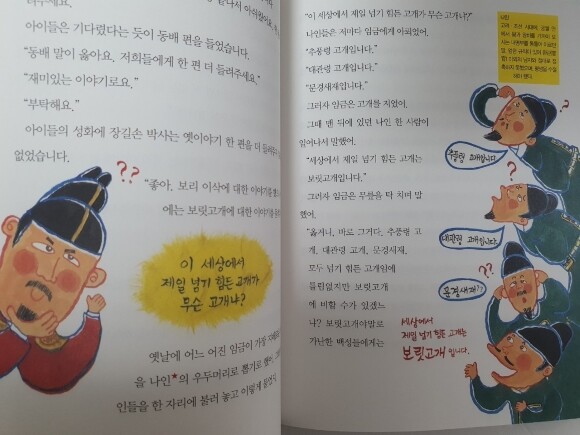 아이들은 기다렸다는 듯이 동배 편을 들었습니다.
"동배 말이 옳아요. 저희들에게 한 편 더 들려주세요."
"재미있는 이야기로요."
"부탁해요."
아이들의 성화에 장길손 박사는 옛이야기 한 편을 더
없었습니다.
??
"좋아, 보리 이삭에 대한 이야기를
에는 보릿고개에 대한 이야기를
이 세상에서
제일 넘기 힘든 고개가
무슨 고개냐?
옛날에 어느 어진 임금이 가장
을 나인*의 우두머리로 뽑기로 했어.
인들을 한 자리에 불러 놓고 이렇게 물었지.
"이 세상에서 제일 넘기 힘든 고개가 무슨 고개냐?"
나인들은 저마다 임금에게 아뢰었어.
"추풍령 고개입니다."
"대관령 고개입니다."
"문경새재입니다."
그러자 임금은 고개를 저었어.
그때 맨 뒤에 있던 나인 한 사람이
일어나서 말했어.
"세상에서 제일 넘기 힘든 고개는
보릿고개입니다."
그러자 임금은 무릎을 탁 치며 말
했어.
"옳거니, 바로 그거다. 추풍령 고
개, 대관령 고개, 문경새재,
모두 넘기 힘든 고개임에
틀림없지만 보릿고개
에 비할 수가 있겠느
냐? 보릿고개야말로
가난한 백성들에게는
나인
??
추풍령 고개입니다.
?
대관령 고개입니다.
??
문경새재??
세상에서
제일 넘기 힘든 고개는
보릿고개입니다.